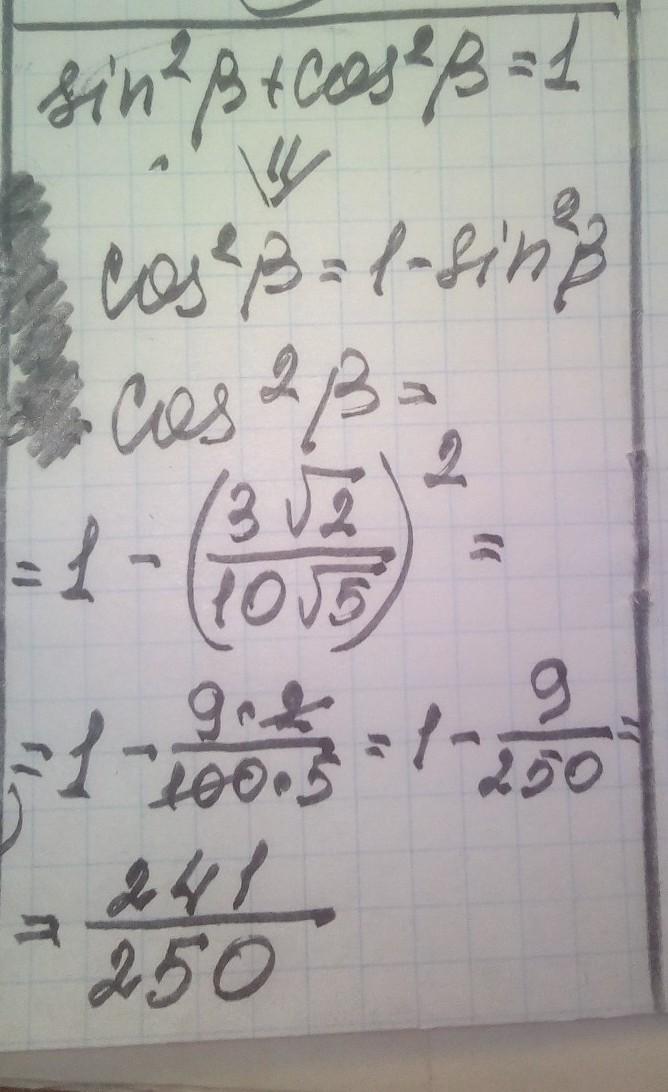 sin²β+cos²β=1
⇓
cos²β=1-sin²β
cos²β=
=1-(3√2/10√5)²=
=1-9·2/100·5=1-9/250=
=241/250